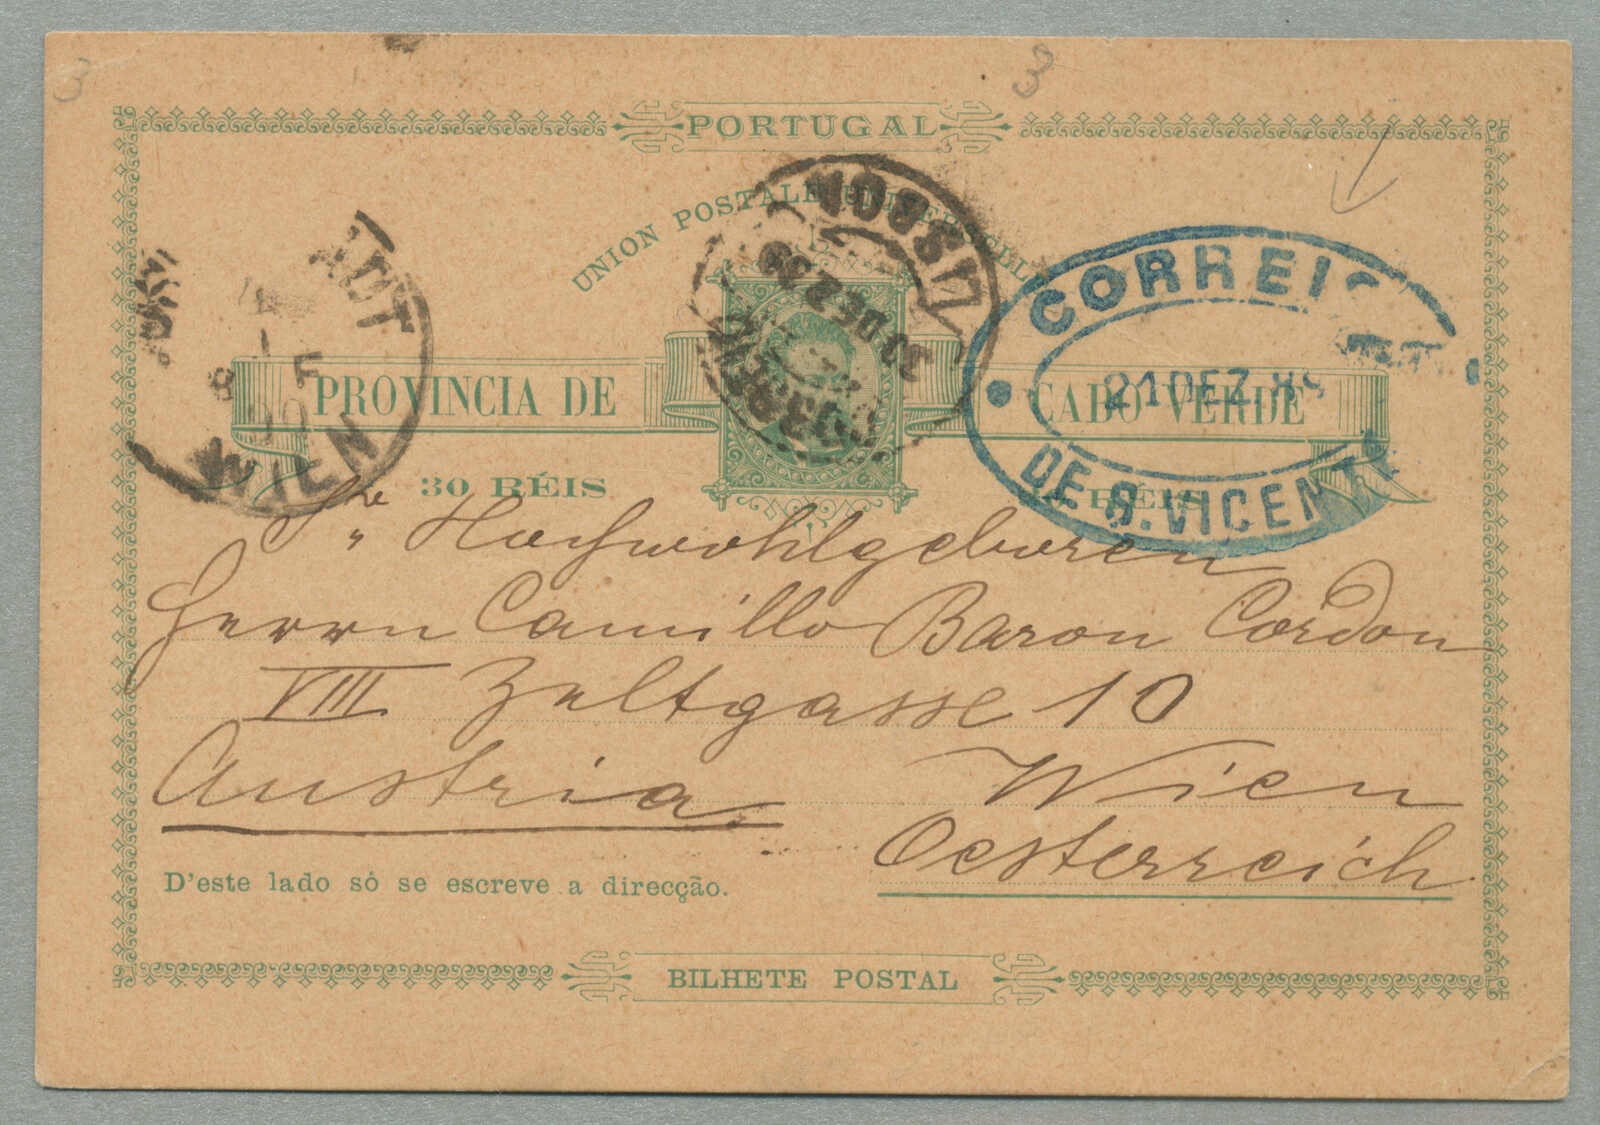 3
3
PORTUGAL
UNION POSTALE UNIVERSELLE
PROVINCIA DE CABO VERDE
30 RÉIS RÉIS
LISBOA
30 DEZ 89
CORREIO
21 DEZ. 89
DE S. VICENTE
STADT
WIEN
Sr Hochwohlgeboren
Herrn Camillo Baron Cordon
VIII Zeltgasse 10
Austria Wien
Oesterreich
D'este lado só se escreve a direcção.
BILHETE POSTAL